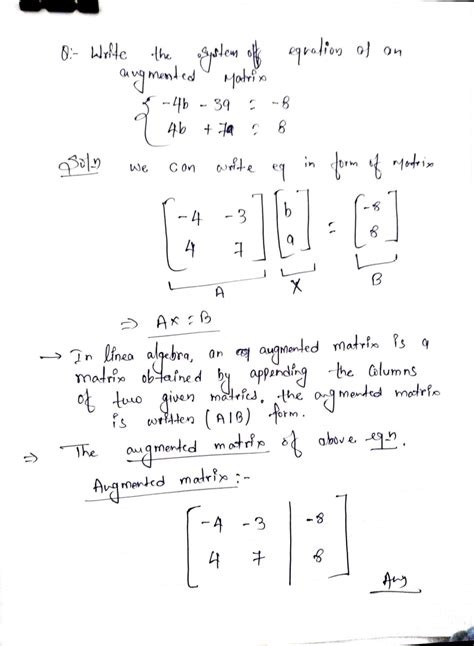 Q:- Write the system of equation of an
augmented Matrix
{ -4b - 3a = -8
4b + 7a = 8
Soln we can write eq in form of Matrix
[-4 -3] [b] = [-8]
[4 7] [a] [8]
A X B
⇒ AX = B
→ In linea algebra, an augmented matrix is a
matrix obtained by appending the columns
of two given matrics. the augmented matrix
is written (A|B) form.
⇒ The augmented matrix of above eqn.
Augmented matrix :-
[-4 -3 | -8]
[4 7 | 8]
Ans